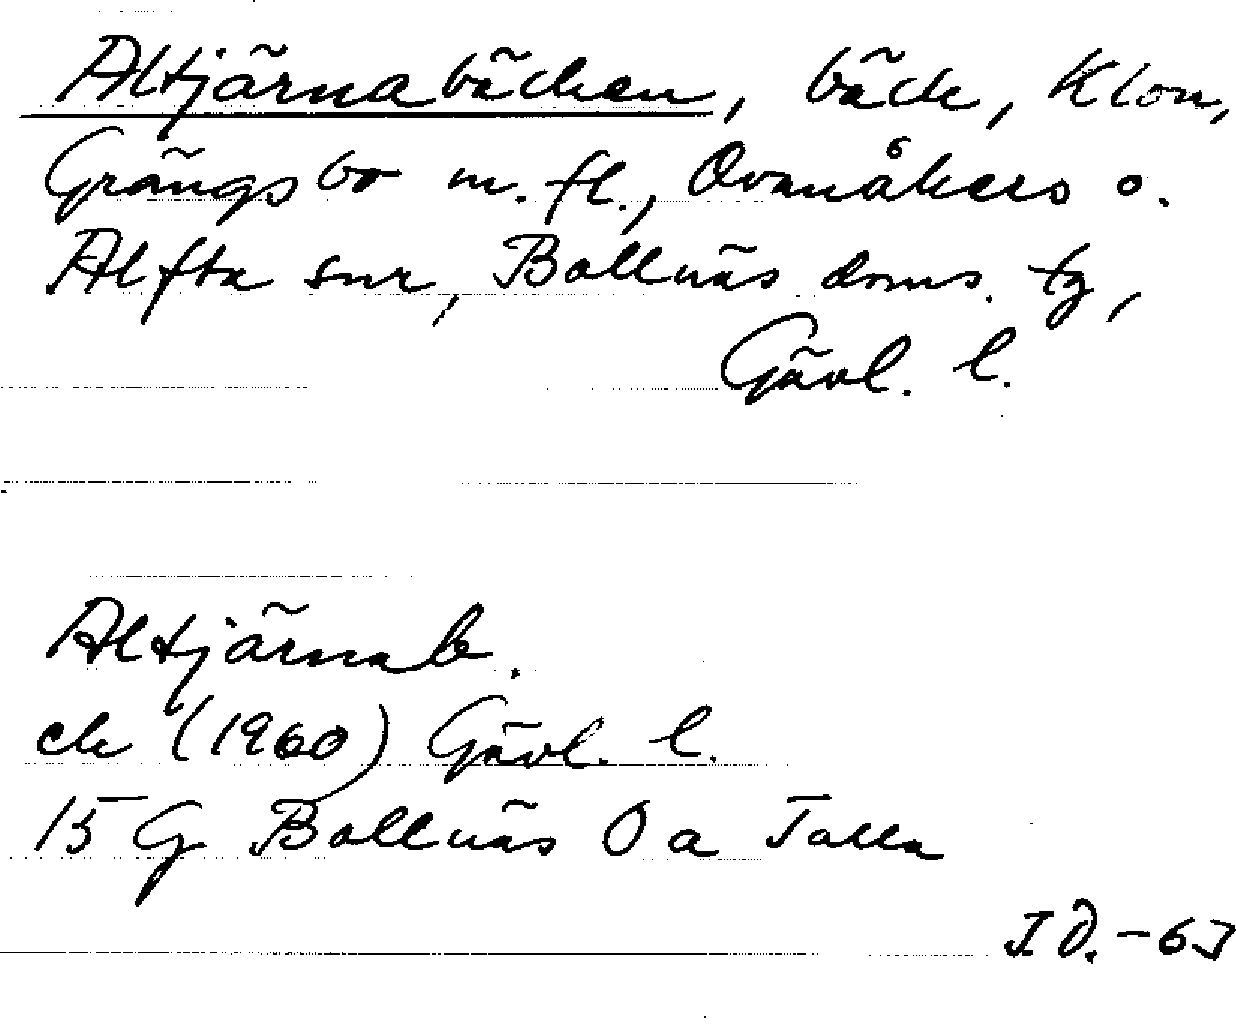 Altjärnabäcken, bäck, Klon,
Grängsbo m. fl., Ovanåkers o.
Alfta snr, Bollnäs doms. tg,
Gävl. l.
Altjärnab.
ek (1960) Gävl. l.
15 G Bollnäs 0 a Talla
I D. - 63